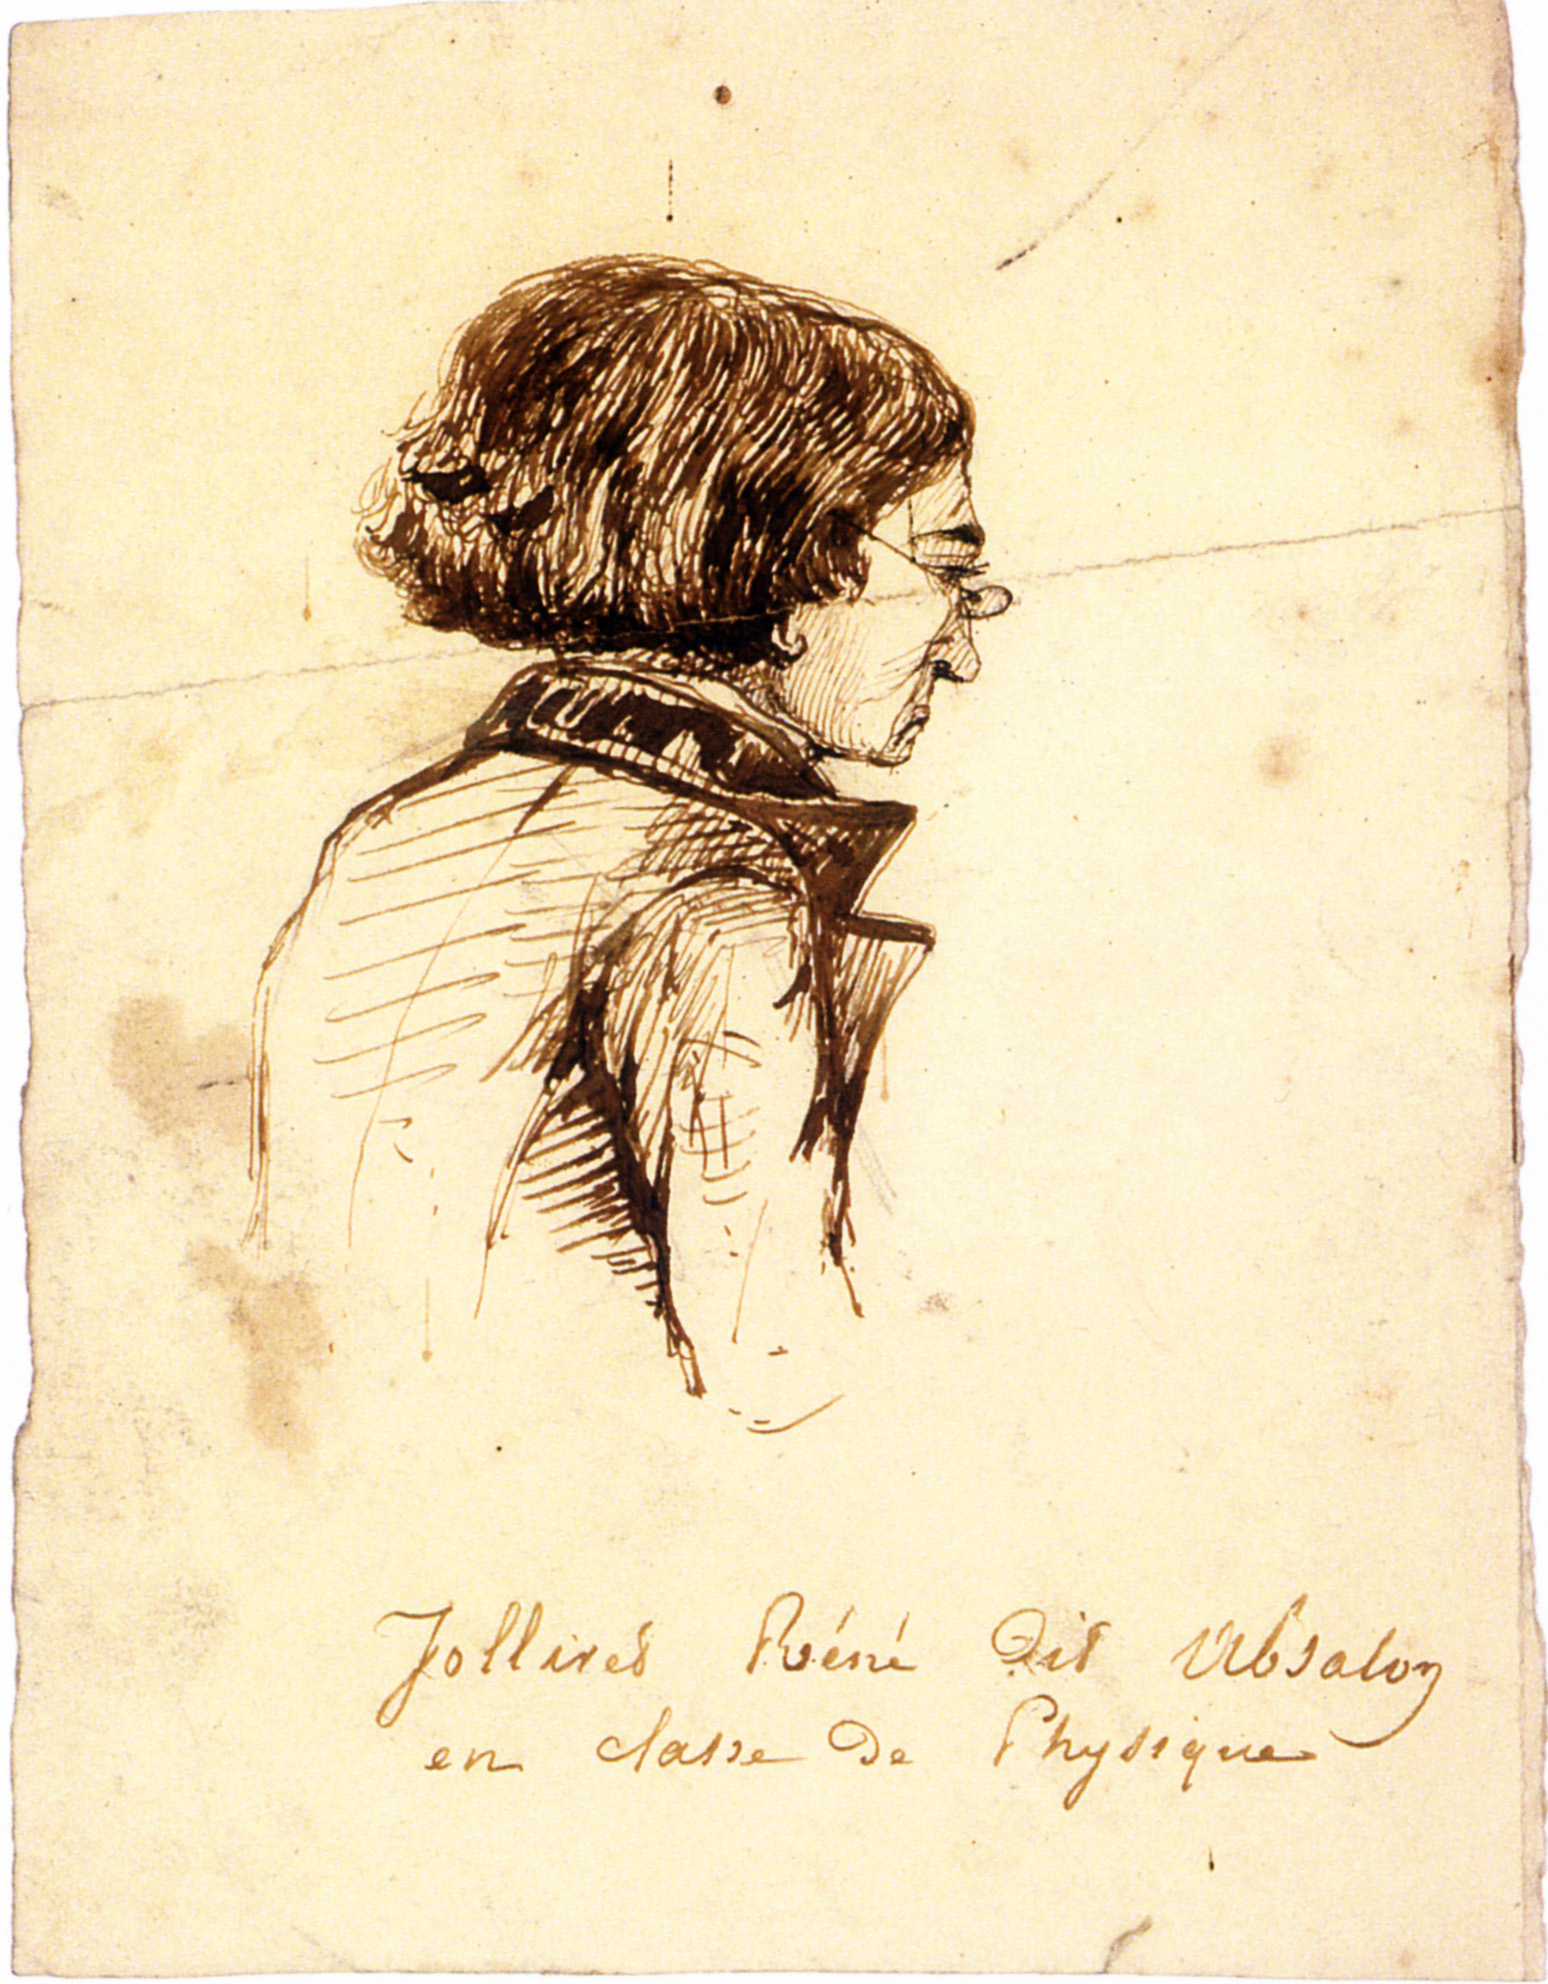 Jollivet Réné dit Absalon
en classe de Physique